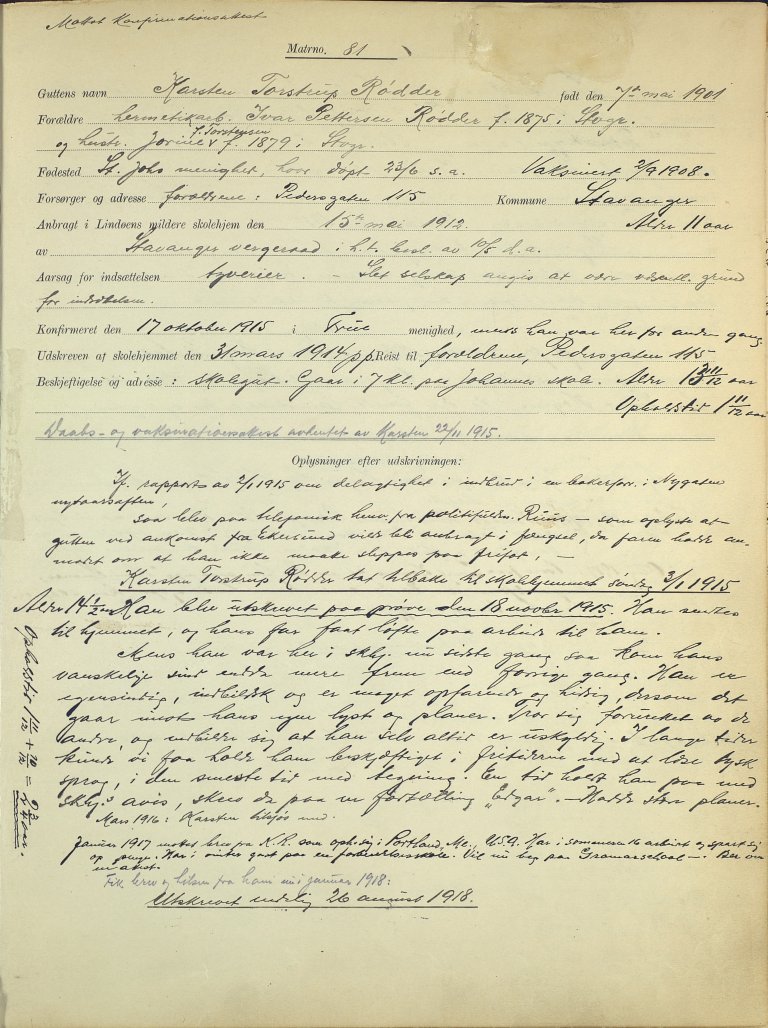 Mottat Konfirmationsattest
Matrno. 81
Guttens navn Karsten Torstrup Rødder født den 7de mai 1901
Forældre hermetikarb. Ivar Pettersen Rødder f. 1875 i Stvgr.
f. Torstensen
og hustr. Jorine f. 1879 i Stvgr.
Fødested St. Johs menighet, hvor døpt 23/6 s. a. Vaksinert 2/9 1908.
Forsørger og adresse forældrene: Pedersgaten 115 Kommune Stavanger
Anbragt i Lindøens mildere skolehjem den 15de mai 1912. Alder 11 aar
av Stavanger vergeraad i h.t. besl. av 10/5 d. a.
Aarsag for indsættelsen tyverier. - Slet selskap angis at være væsentl. grund
for indsættelsen.
Konfirmeret den 17 oktober 1915 i Frue menighed, mens han var her for anden gang
Udskreven af skolehjemmet den 31 mars 1914 pp. Reist til forældrene, Pedersgaten 115
Beskjeftigelse og adresse: skolegut. Gaar i 7 kl. paa Johannes skole. Alder 12 11/12 aar
Opholdstid 1 11/12 aar
Daabs- og vaksinationsattest avhentet av Karsten 22/11 1915.
Oplysninger efter udskrivningen:
If. rapport av 2/1 1915 om delagtighet i indbrud i en bakerforr. i Nygaten
nytaarsaften,
saa blev paa telefonisk henv. fra politifuldm. Riius - som oplyste at
gutten ved ankomst fra Ekersund vilde bli anbragt i fengsel, da faren hadde an-
modet om at han ikke maatte slippes paa frifot, -
Karsten Torstrup Rødder tat tilbake til skolehjemmet søndag 3/1 1915
Alder 14 1/2 aar Han blev utskrevet paa prøve den 18 novbr 1915. Han sendtes
til hjemmet, og hans far faat løfte paa arbeide til ham.
Mens han var her i skhj. nu siste gang saa kom hans
vanskelige sind endda mere frem end forrige gang. Han er
egensindig, indbildsk og er meget opfarende og hidsig, dersom det
gaar imot hans egne lyst og planer. Tror sig forurettet av de
andre, og indbilder sig at han selv altid er uskyldig. I lange tider
kunde vi faa holde ham beskjæftiget i fritiderne med at læse tysk
sprog, i den seneste tid med tegning. En tid holdt han paa med
skhj's avis, skrev da paa en fortælling "Edgar". - Hadde store planer.
Opholdstid 1 11/12 + 10/12 = 2 3/4 aar.
Mars 1916: Karsten tilsjøs nu.
Januar 1917 motat brev fra K. R. som oph. sig i Portland, Me., USA. Har i sommeren 16 arbeidet og spart sig
op penge. Har i vinter gaat paa en forberedelsesskole. Vil nu beg. paa Gramarschool -.
Fik brev og hilsen fra ham nu i januar 1918:
Utskrevet endelig 26 august 1918.